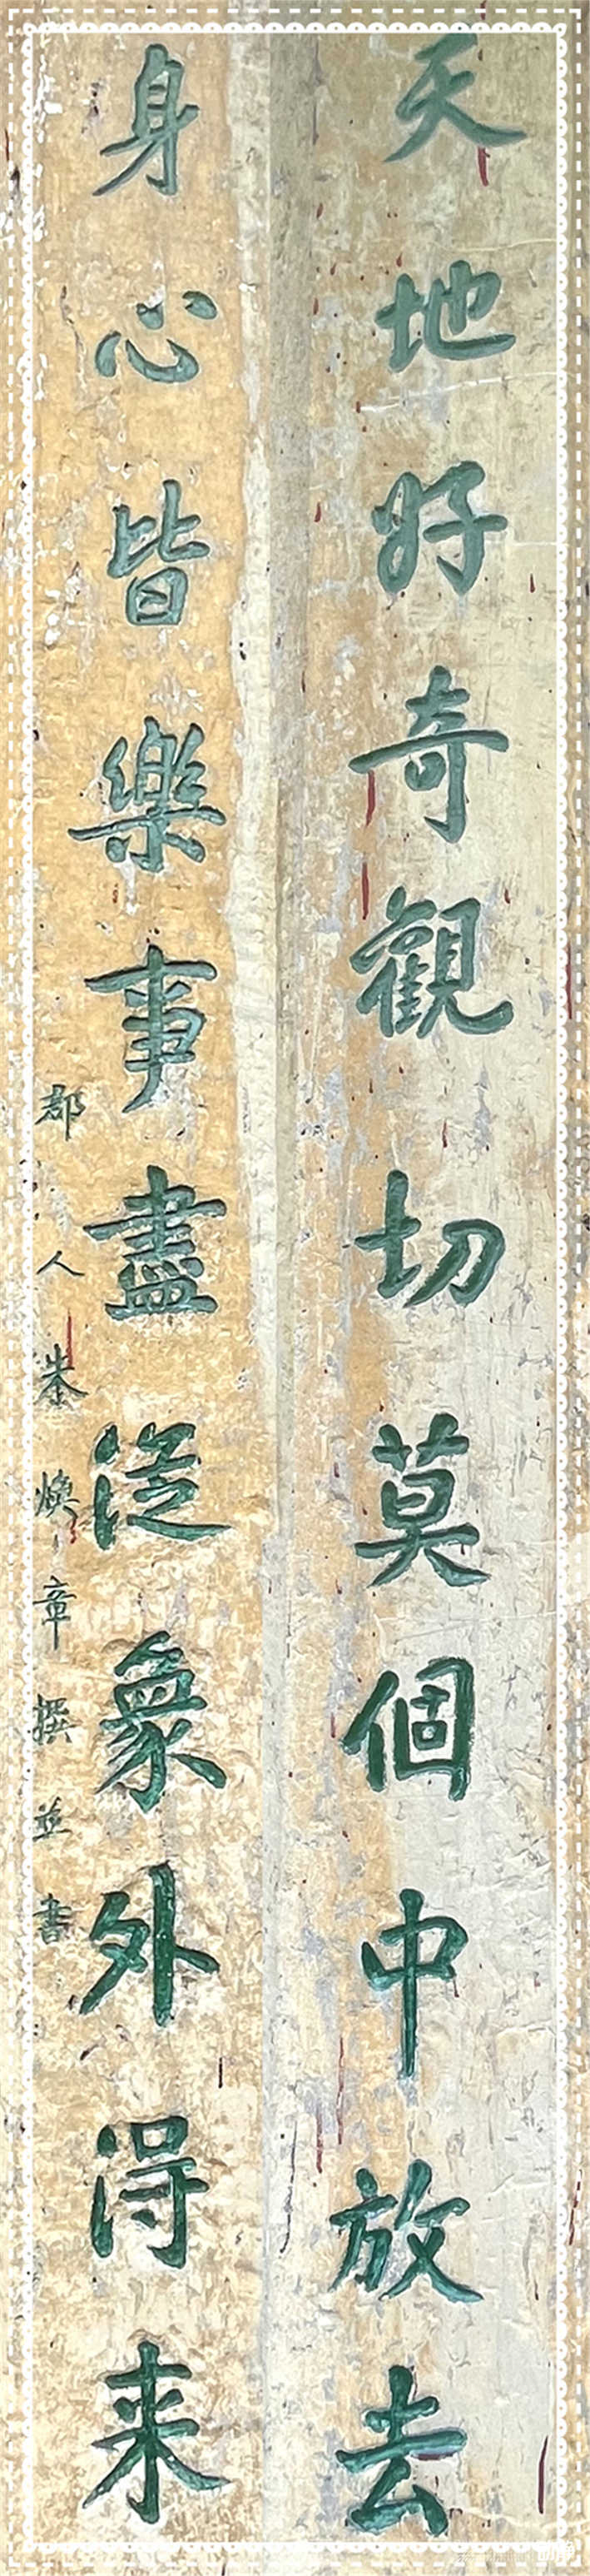 天地好奇觀切莫個中放去
身心皆樂事盡從象外得来
郡人朱煥章撰並書